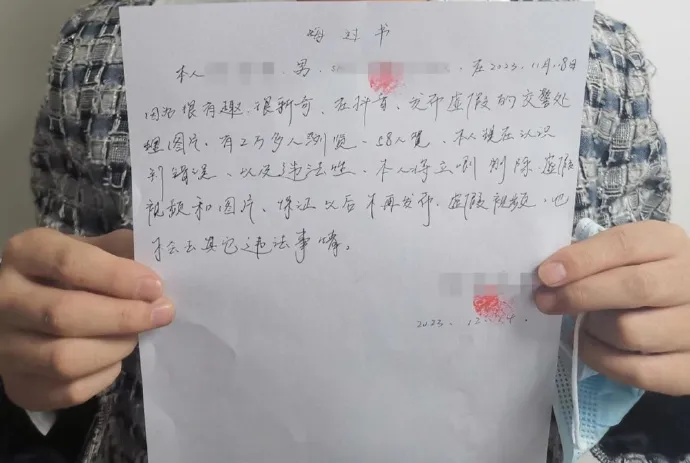 悔过书
本人 男. 在2023.11月18日
因为很有趣、很新奇、在抖音、发布虚假的交警处
理图片、有2万多人浏览、58人赞、本人现在认识
到错误、以及违法性、本人将立刻删除虚假
视频和图片、保证以后不再发布虚假视频、也
不会去其它违法事情。
2023.12.4.